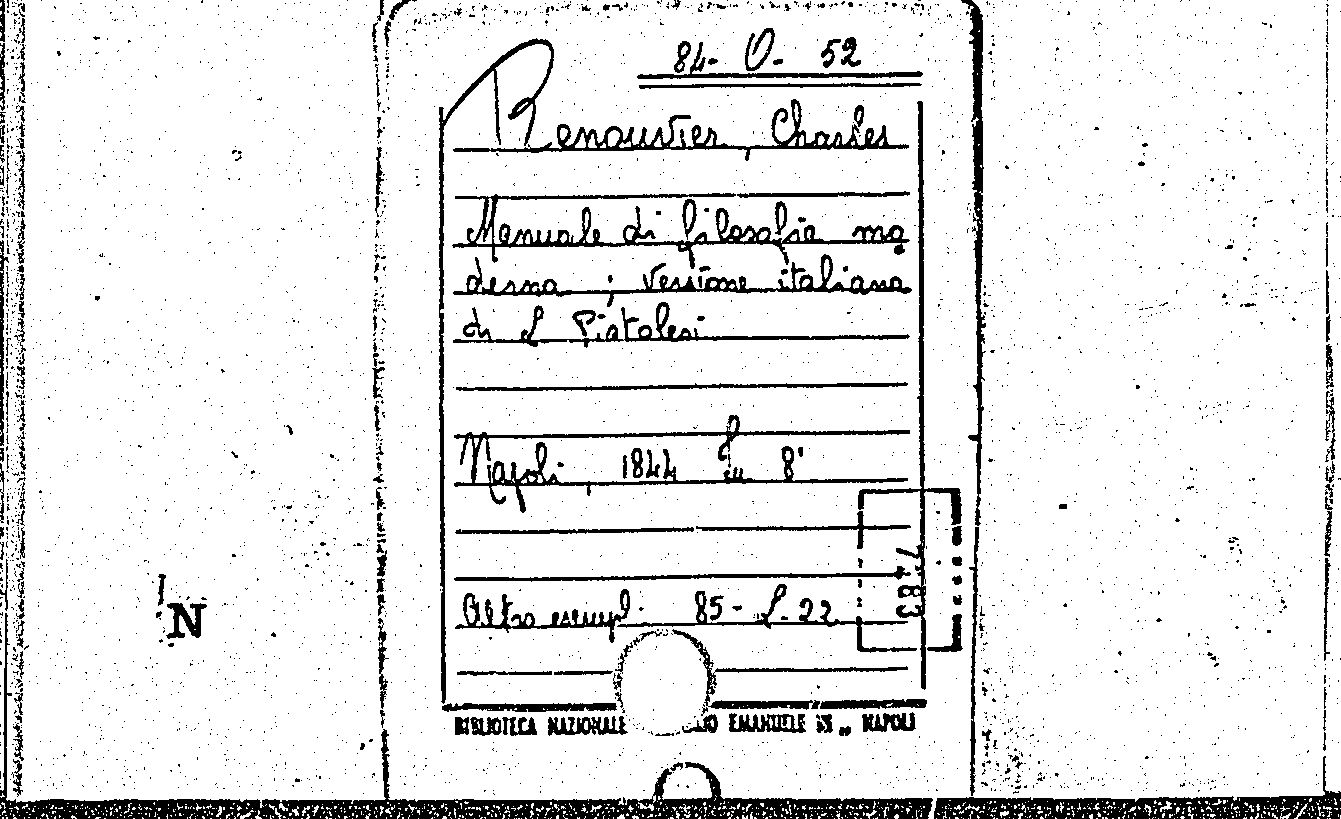 84- O- 52
Renouvier, Charles
Manuale di filosofia mo
derna ; versione italiana
di L Pistolesi
Napoli, 1844 In 8°
Altro esempl. 85- L. 22
7283
N
BIBLIOTECA NAZIONALE EMANUELE III „ NAPOLI